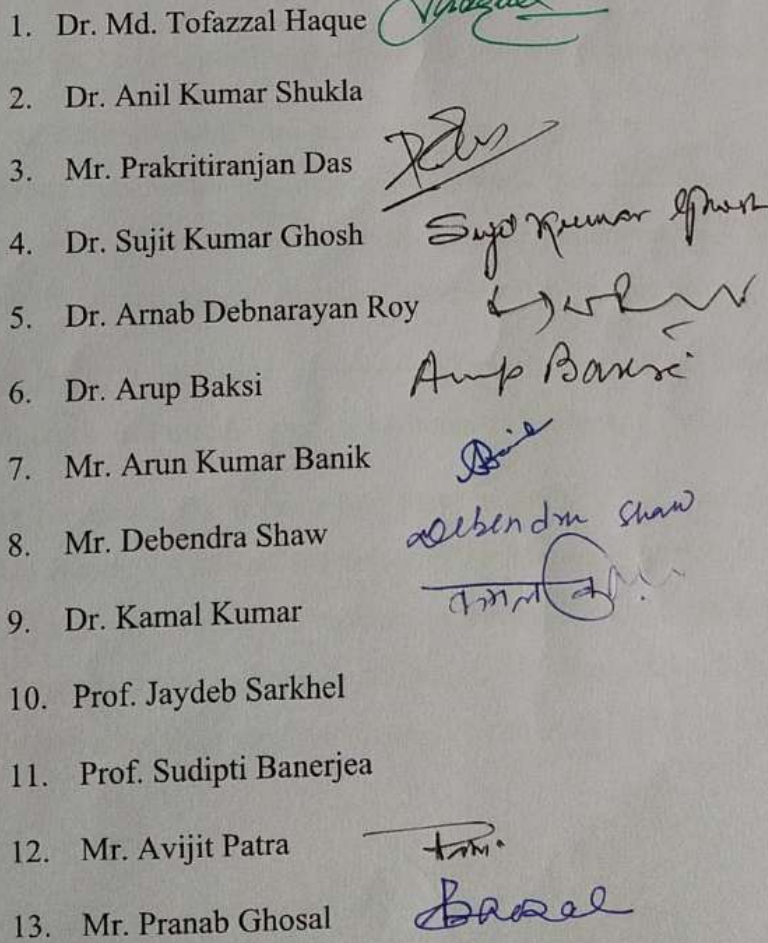 1. Dr. Md. Tofazzal Haque
2. Dr. Anil Kumar Shukla
3. Mr. Prakritiranjan Das
4. Dr. Sujit Kumar Ghosh Sujit Kumar Ghosh
5. Dr. Arnab Debnarayan Roy
6. Dr. Arup Baksi Arup Baksi
7. Mr. Arun Kumar Banik
8. Mr. Debendra Shaw Debendra Shaw
9. Dr. Kamal Kumar कमल
10. Prof. Jaydeb Sarkhel
11. Prof. Sudipti Banerjea
12. Mr. Avijit Patra
13. Mr. Pranab Ghosal